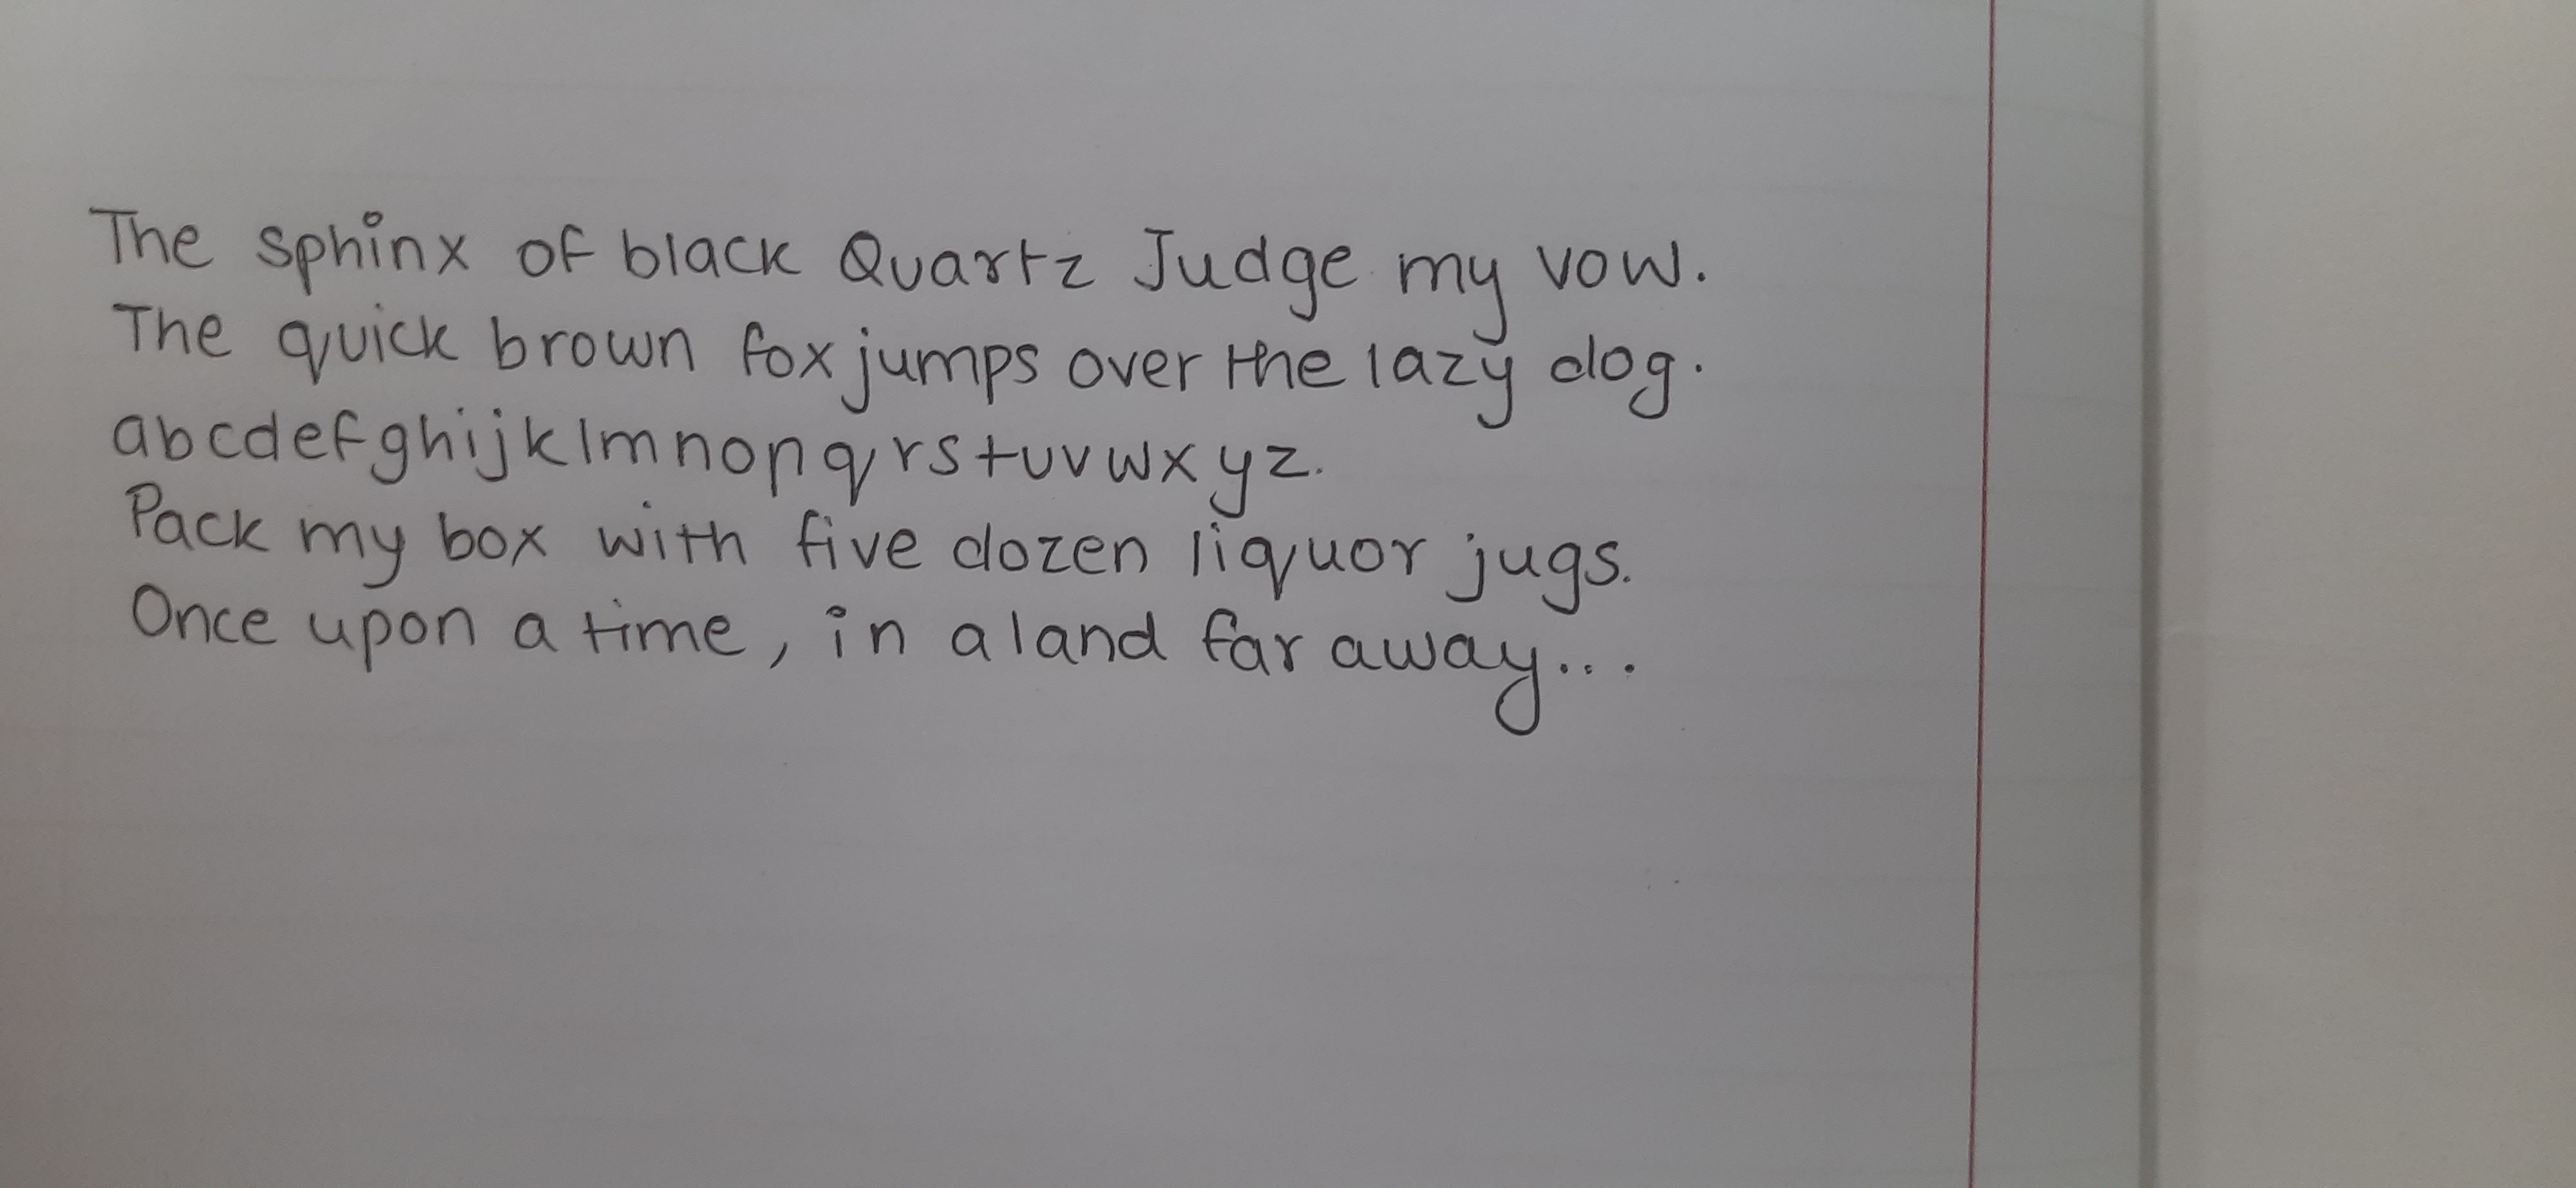 The sphinx of black Quartz Judge my vow.
The quick brown fox jumps over the lazy dog.
abcdefghijklmnopqrstuvwxyz.
Pack my box with five dozen liquor jugs.
Once upon a time, in a land far away...